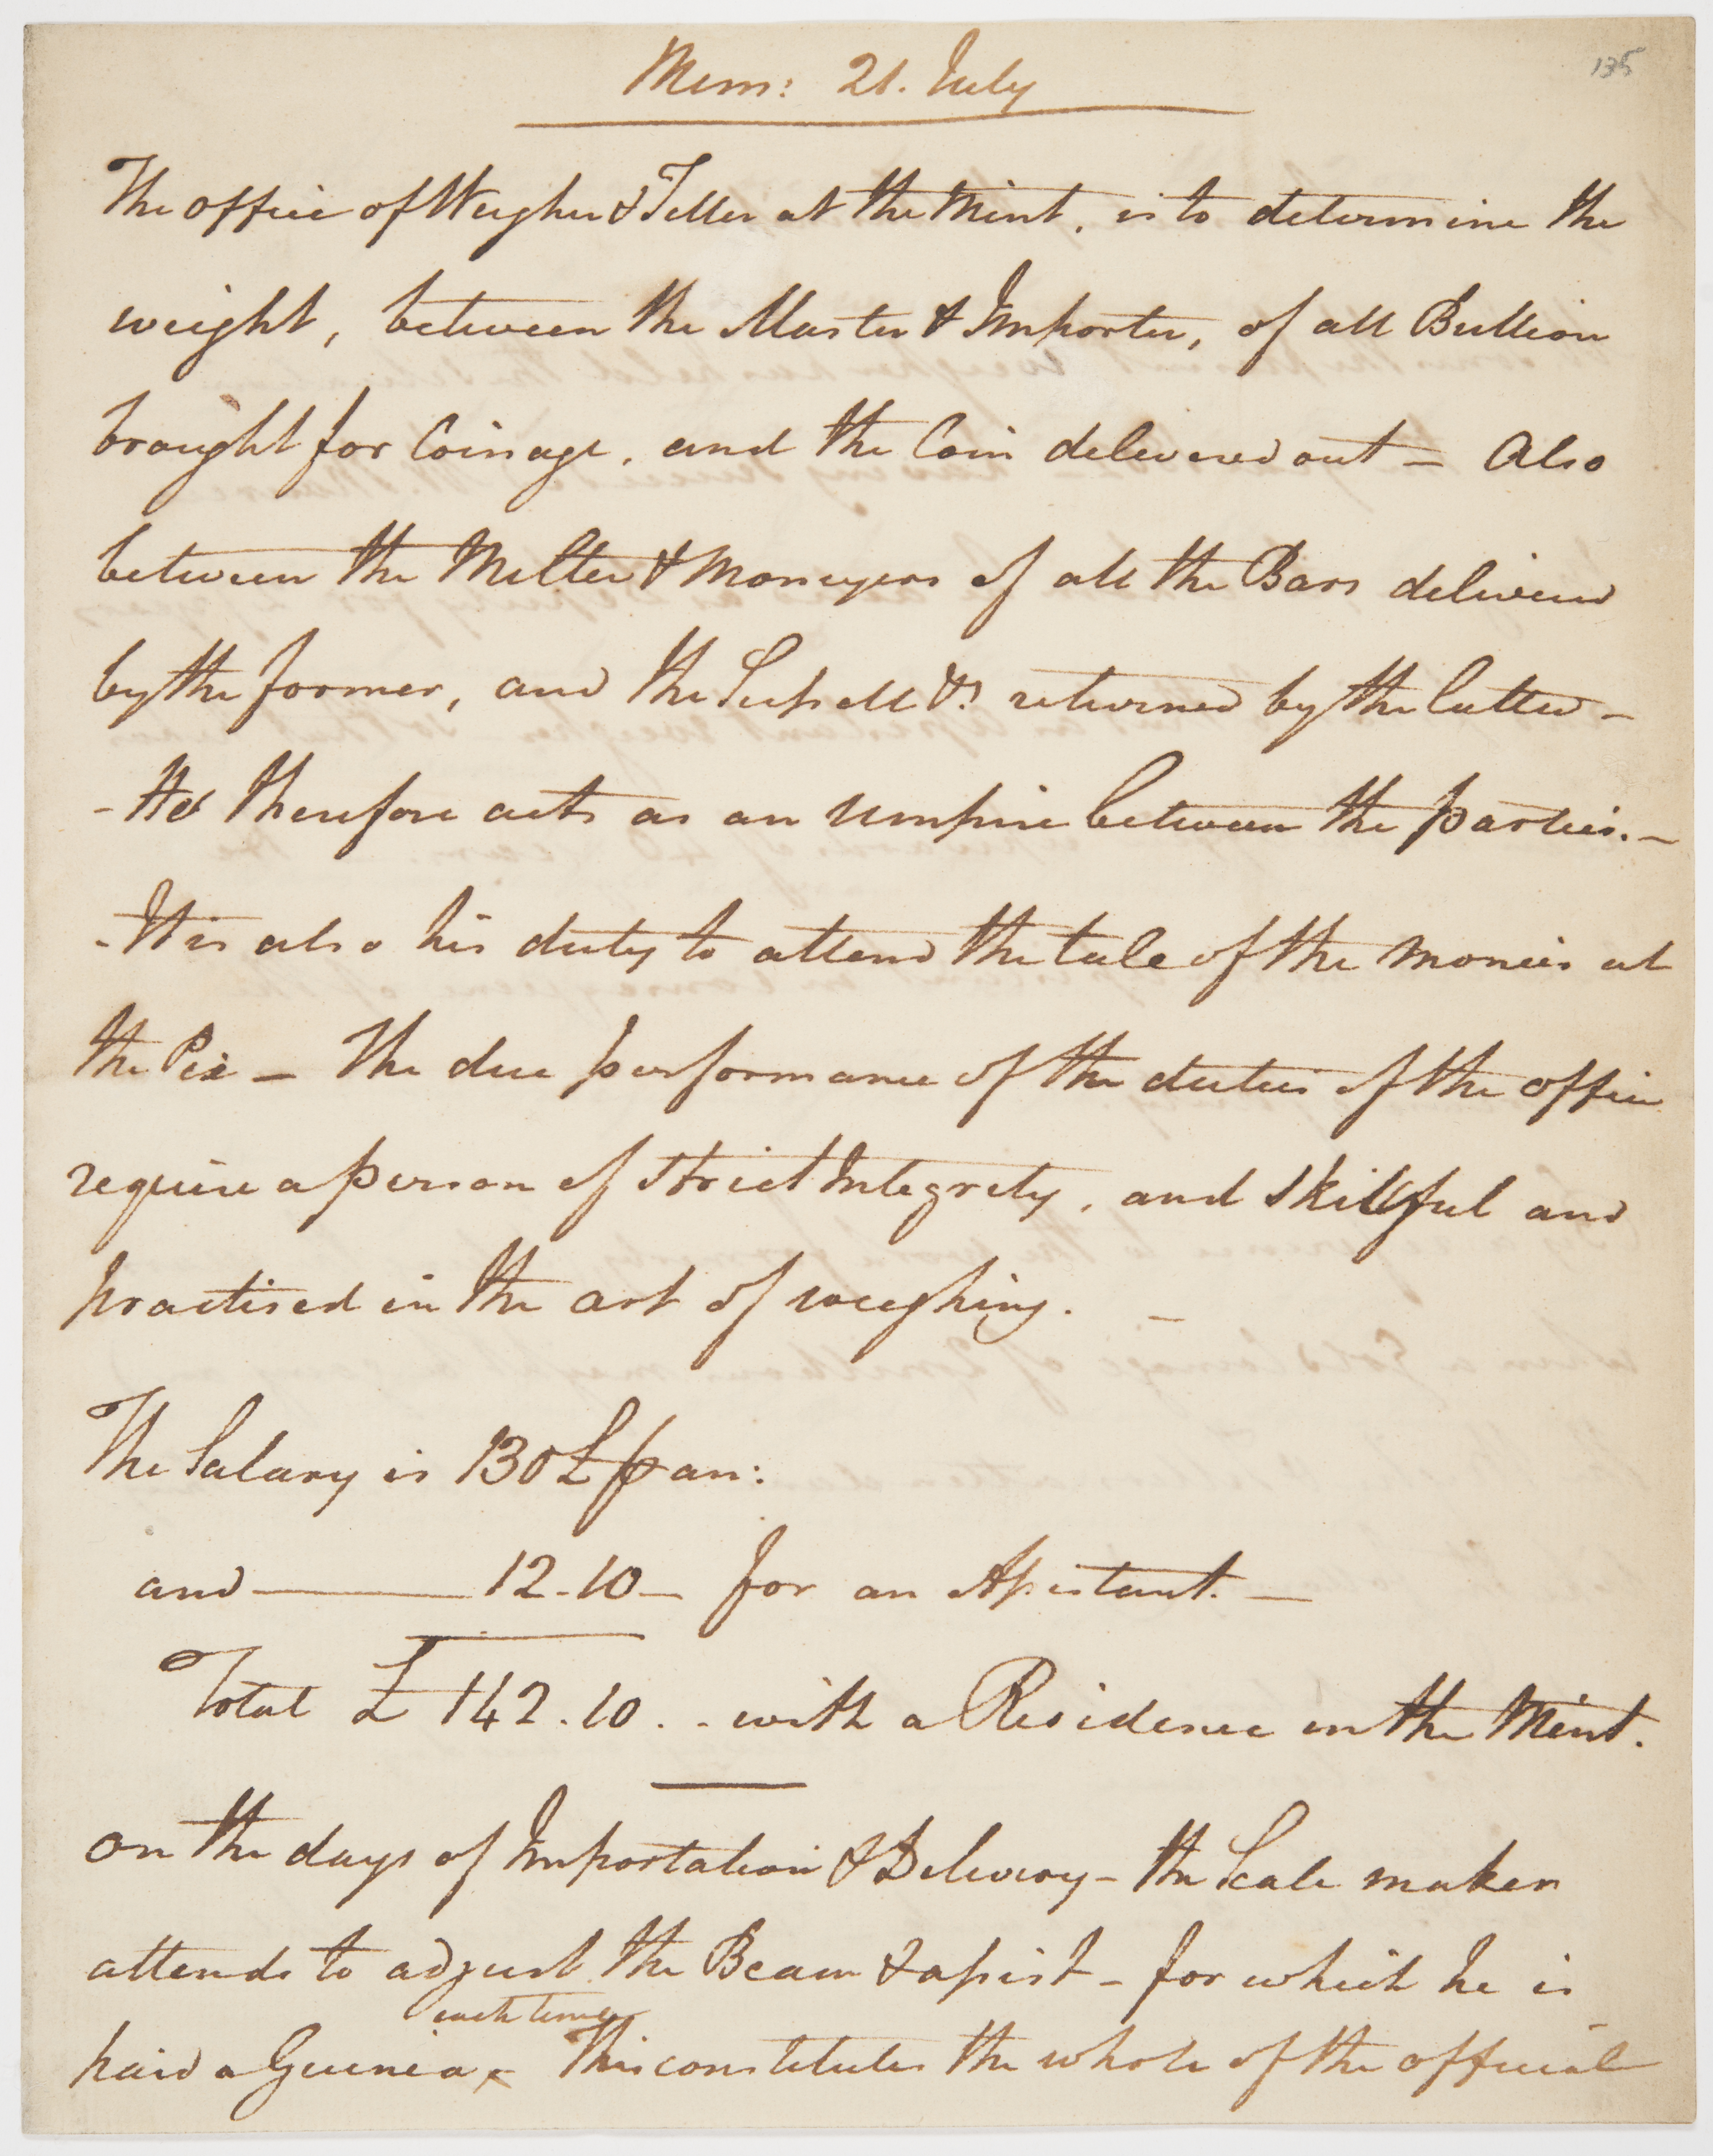 135
Mem: 21. July
The office of Weigher & Teller at the Mint, is to determine the
weight, between the Master & Importer, of all Bullion
brought for Coinage, and the Coin delivered out – Also
between the Melter & Moneyers of all the Bars delivered
by the former, and the Scissell &c returned by the latter –
- He therefore acts as an Umpire between the parties. –
- It is also his duty to attend the tale of the Monies at
the Pix – The due performance of the duties of the office
require a person of strict Integrety, and skillful and
practised in the art of weighing. –
The Salary is 130£ p an:
and ——— 12-10 – for an Assistant. –
Total £ 142.10 . . with a Residence in the Mint.
on the days of Importation & Delivery – the Scale maker
attends to adjust the Beam & assist – for which he is
each time
paid a Guinea – This constitutes the whole of the official